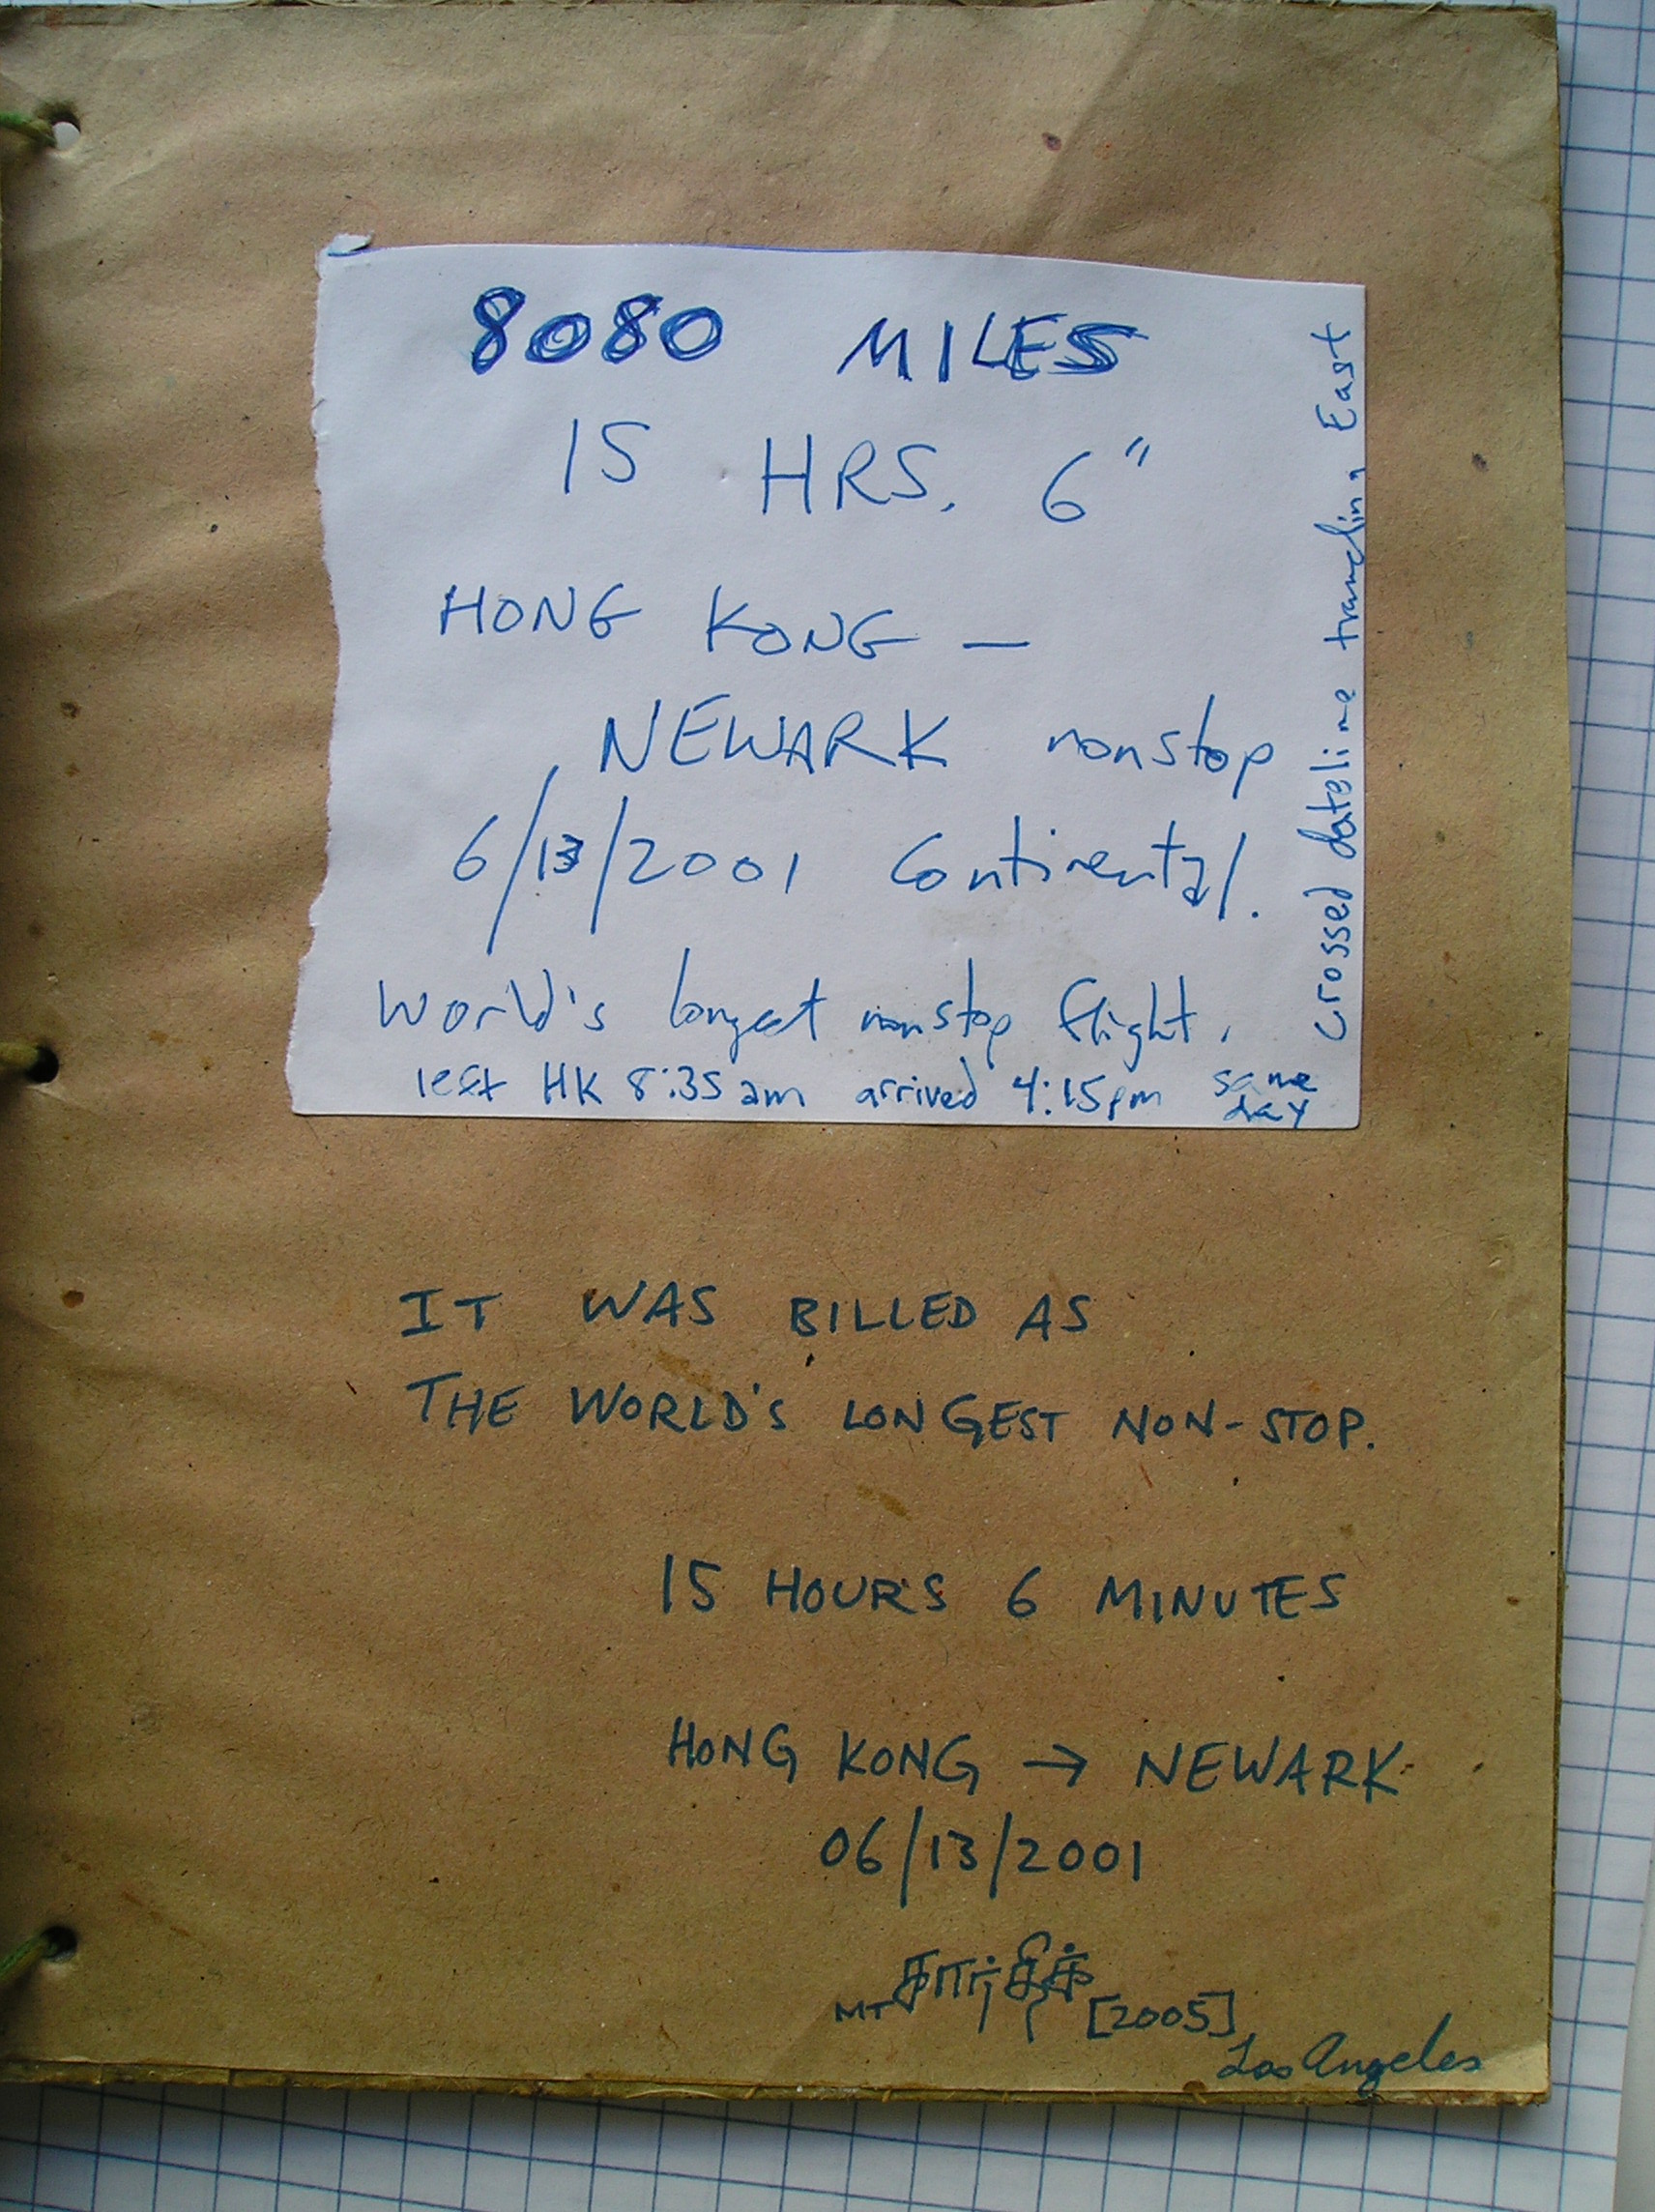 8080 MILES
15 HRS. 6"
HONG KONG —
NEWARK nonstop
6/13/2001 Continental.
World's longest nonstop flight.
left HK 8:35am arrived 4:15pm same
day
Crossed dateline traveling East
IT WAS BILLED AS
THE WORLD'S LONGEST NON-STOP.
15 HOURS 6 MINUTES
HONG KONG → NEWARK
06/13/2001
MT [2005]
Los Angeles